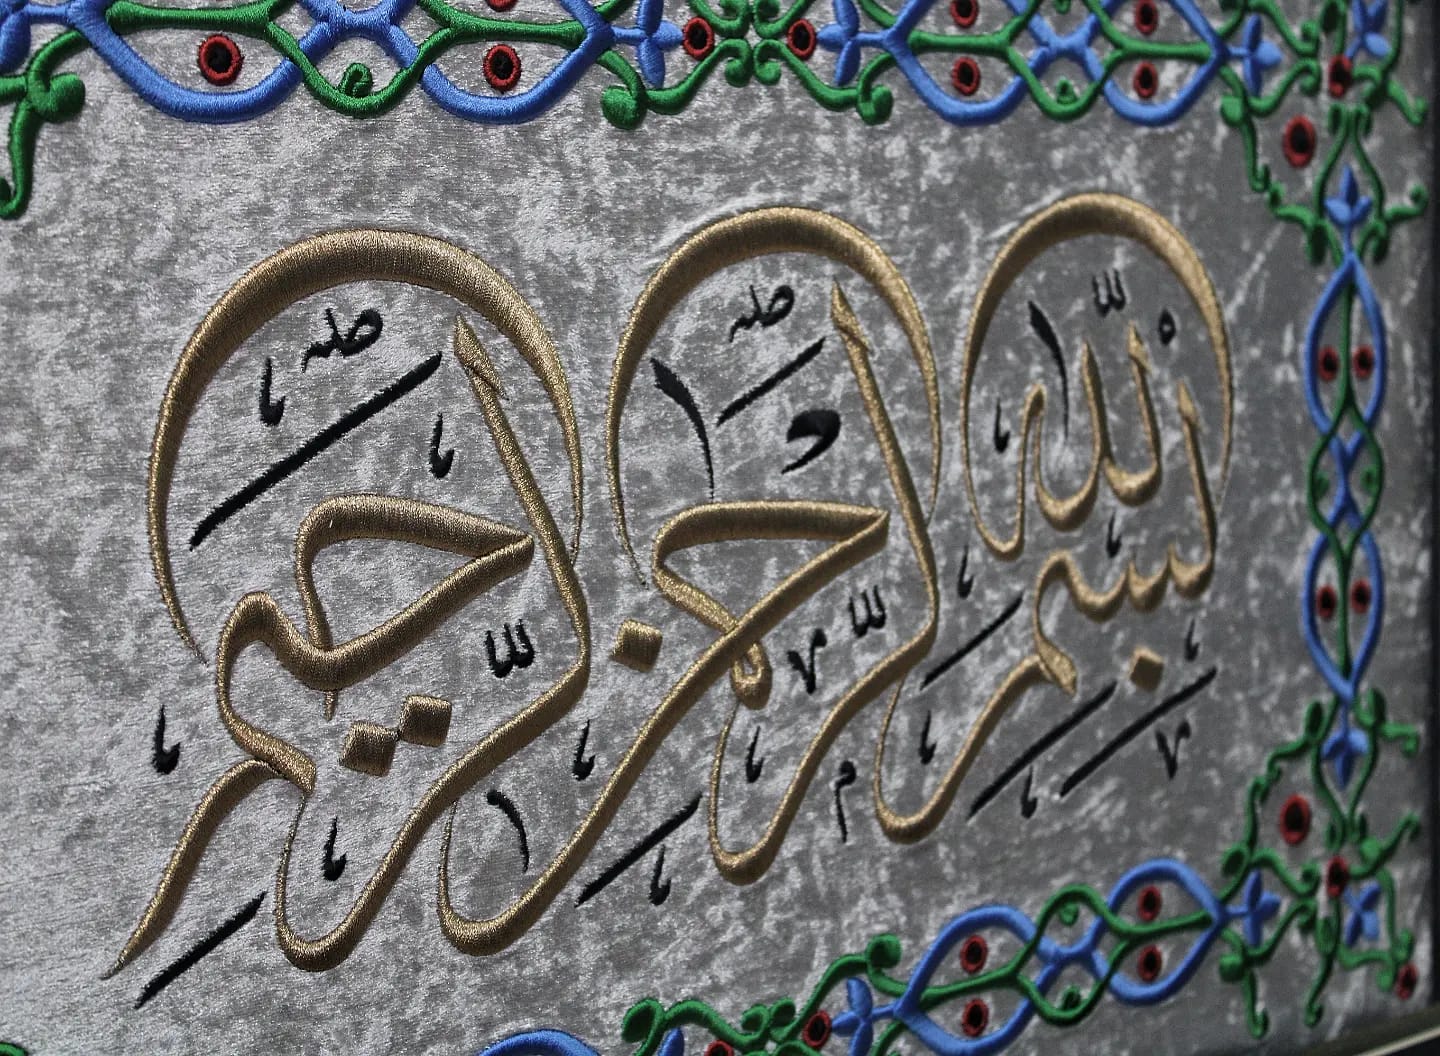 بِسْمِ اللّٰهِ الرَّحْمٰنِ الرَّحِيمِ